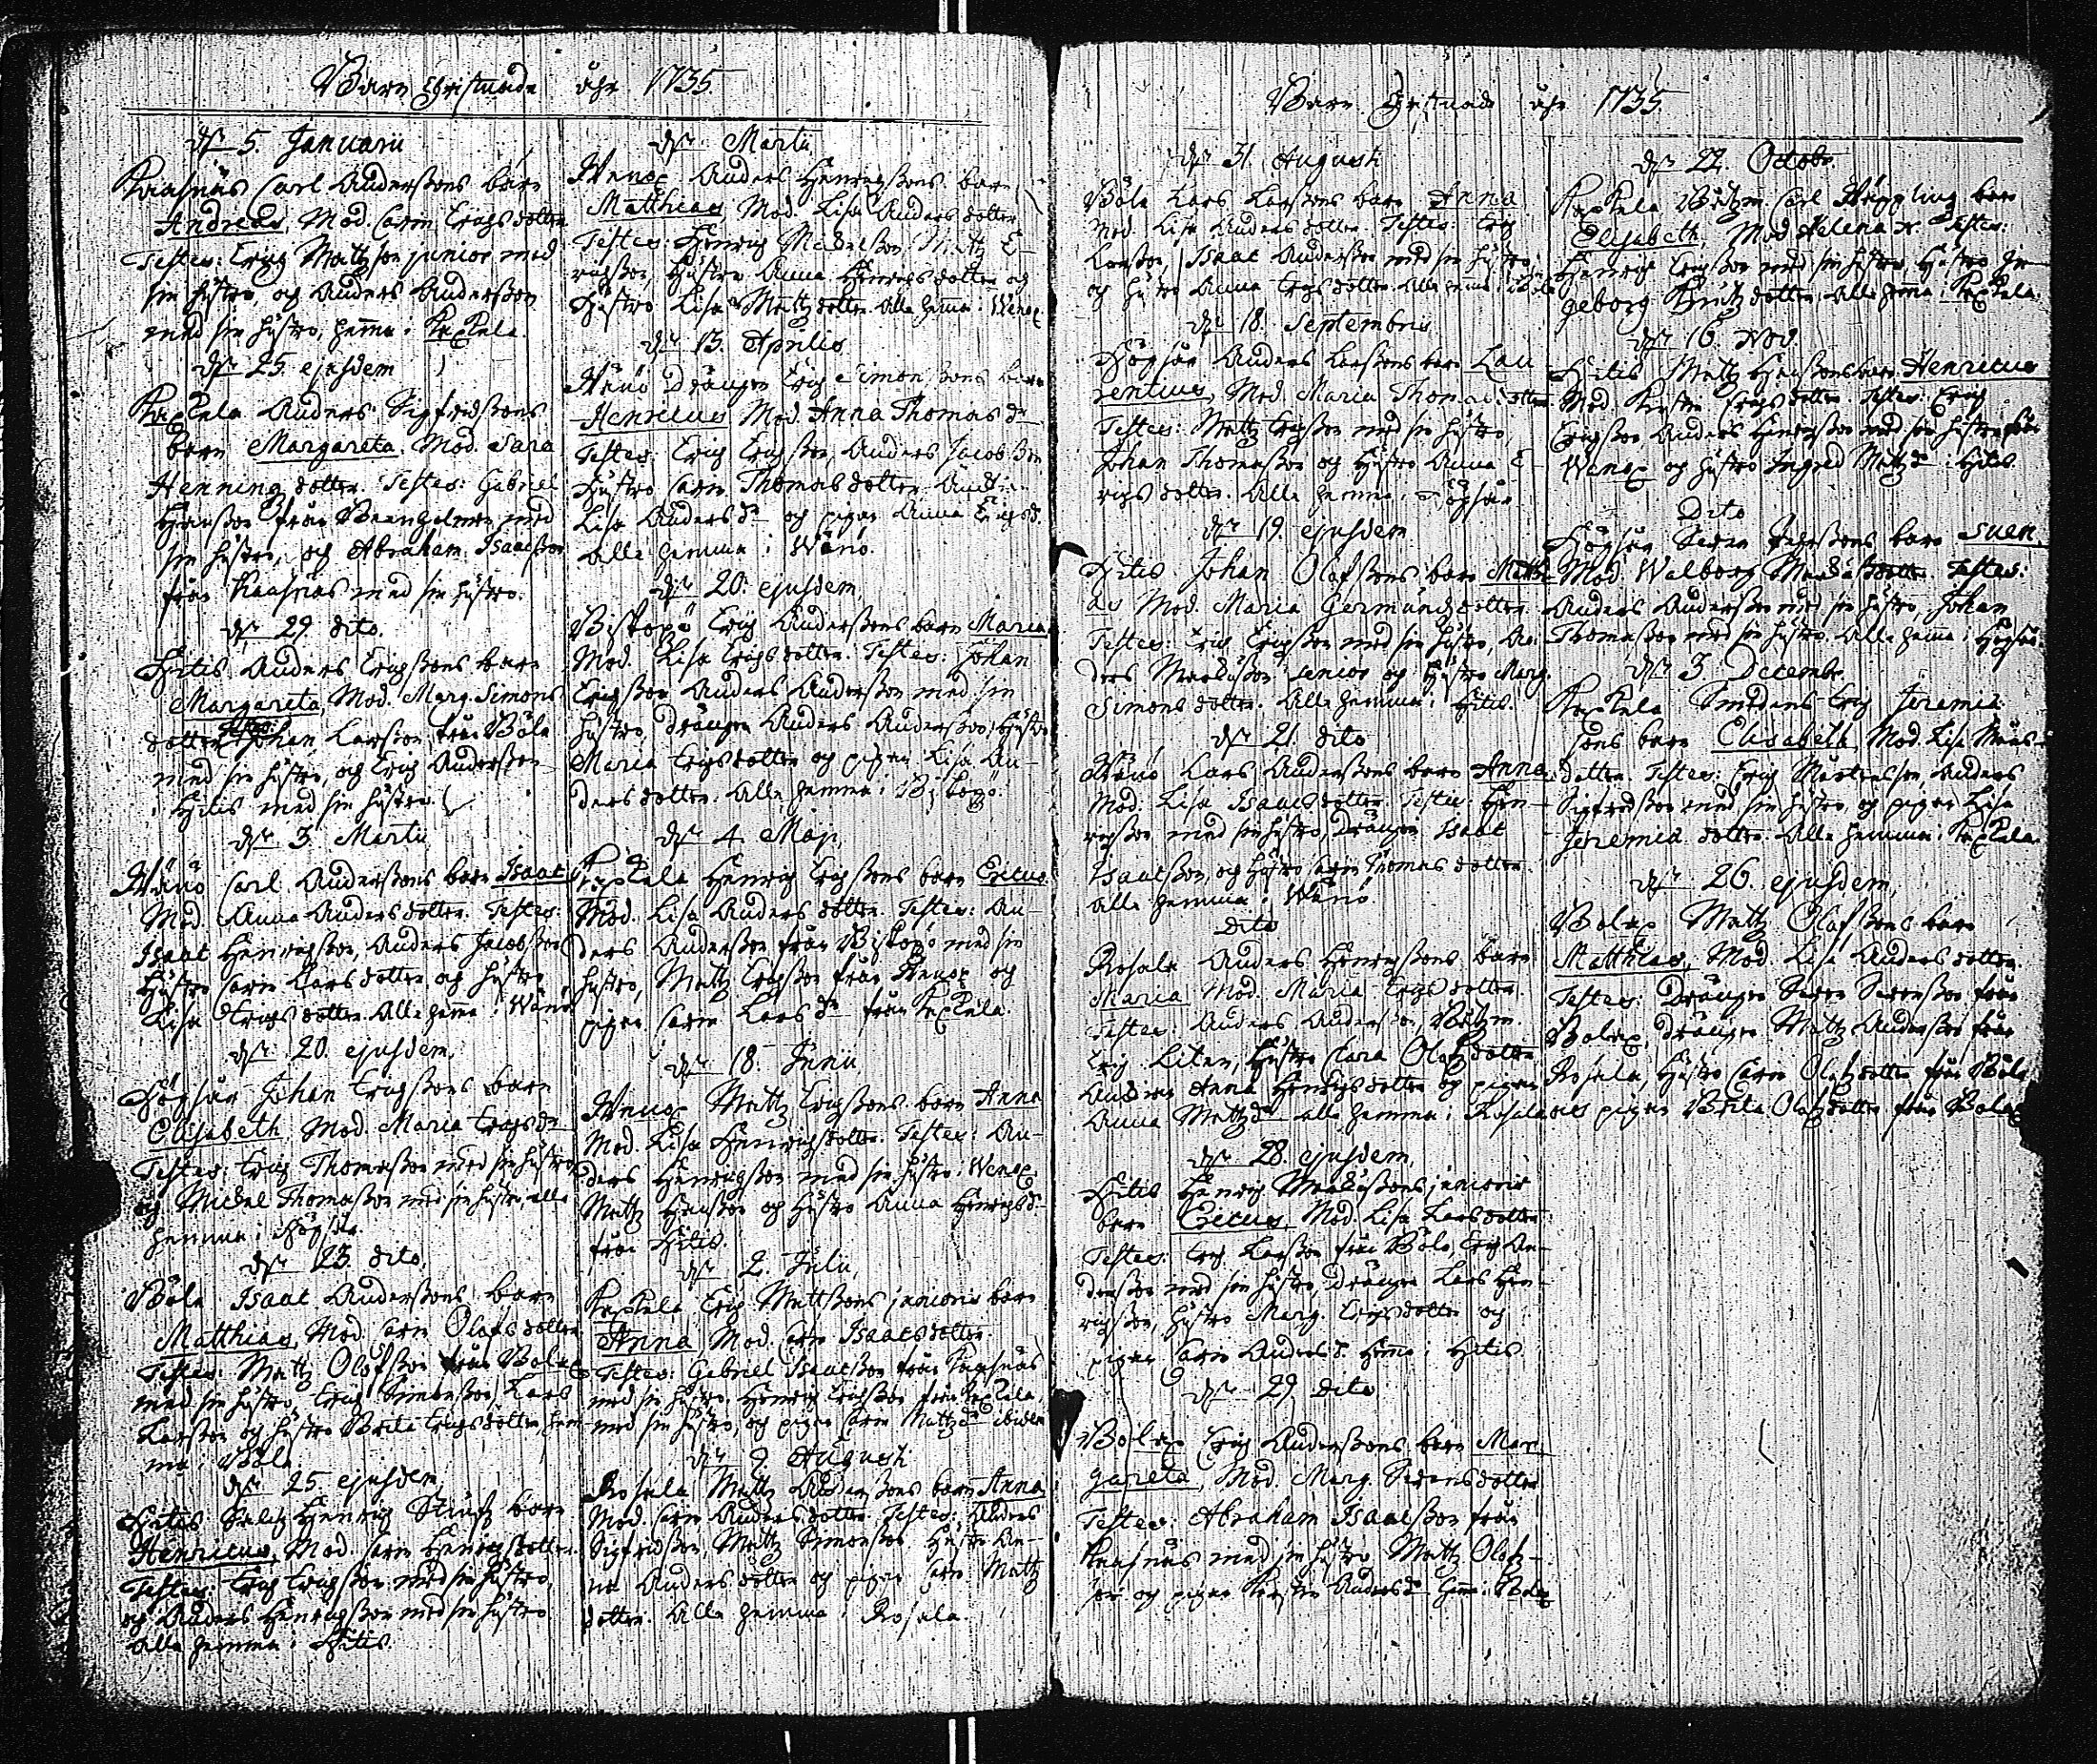 Barn Christnade åhr 1735
d. 5. Januarii
Kaasnäs Carl Anderssons barn
Andreas, Mod. Carin Erigsdotter
Testes: Erig Mattzson junior med
sin hustro, og Anders Andersson
med sin hustro, hemma i Kexkela.
d. 25. ejusdem
Kexkela Anders Sigfredssons
barn Margareta. Mod. Sara
Hennings dotter. Testes: Gabriel
Hansson från med
sin hustro, og Abraham Isaacsson
från Kaasnäs med sin hustro.
d. 29. dito.
Hitis Anders Erigssons barn
Margareta, Mod. Marg. Simons
dotter Testes: Johan Larsson från Böle
med sin hustro, og Erig Andersson
i Hitis med sin hustro.
d. 3. Martii
Wänö Carl Anderssons barn Isaac
Mod. Anna Anders dotter. Testes:
Isaac Henrigsson, Anders Jacobsson
Hustro Carin Larsdotter og hustro
Lisa Erigsdotter. Alla hema i Wänö
d. 20. ejusdem,
Högsår Johan Erigssons barn
Elisabeth Mod. Maria Erigsdr
Testes: Erig Thomasson med sin hustro
og Michel Thomasson med sin hustro, alla
hemma i Högsår
d. 23. dito.
Böle Isaac Anderssons barn
Matthias, Mod. Carin Olofsdotter
Testes: Mattz Olofsson från Bolax
med sin hustro, Erig Simonsson, Lars
Larsson og hustro Brita Erigsdotter, hem-
ma i Böle.
d. 25. ejusdem
Hitis Henrig barn
Henricus, Mod. Carin Henrigsdotter.
Testes: Erig Erigsson med sin hustro,
og Anders Henrigsson med sin hustro
Alla hemma i Hitis.
d. Martii
Wenox Anders Henrigssons barn
Matthias, Mod. Lisa Anders dotter
Testes: Henrig Michelsson, Mattz E-
rigsson, Hustro Anna Henrigsdotter og
Hustro Lisa Mattzdotter. Alla hema i Wenox
d. 13. Aprilis
Wänö Drängen Erig Simonssons barn
Henricus Mod. Anna Thomas dr
Testes: Erig Erigsson, Anders Jacobsson
Hustro Carin Thomasdotter
Lisa Anders dr og pigan Anna Erigsd.
Alla hemma i Wänö.
d. 20. ejusdem,
Biskopsö Erig Anderssons barn Maria
Mod. Lisa Erigsdotter. Testes: Johan
Erigsson Anders Andersson med sin
hustro, Drängen Anders Andersson, Hustro
Maria Erigsdotter og pigan Lisa An-
dersdotter. Alla hemma i Biskopsö.
d. 4. Maji,
Kexkela Henrig Erigssons barn Ericus.
Mod. Lisa Anders dotter. Testes: An-
ders Andersson från Biskopsö med sin
hustro, Mattz Erigsson från Wenox og
pigan Carin Larsdr från Kexkela.
d. 18. Junii
Wenox Mattz Erigssons barn Anna
Mod. Lisa Henrigsdotter. Testes: An-
ders Henrigsson med sin hustro i Wenox
Mattz Hansson og Hustro Anna Henrigsd.
från Hitis.
d. 2. Julii
Kexkela Erig Mattssons junioris barn
Anna Mod. Carin Isaacsdotter
Testes: Gabriel Isaacsson från Kaasnäs
med sin hustro, Henrig Erigsson från Kexkela
med sin hustro, og pigan Carin Mattzdr ibidem
d. 9. Augusti
Rosala Mattz Anderssons barn Anna
Mod. Carin Andersdotter. Testes: Anders
Sigfridsson, Mattz Simonsson, Hustro An-
na Andersdotter og pigan Carin Mattz
dotter. Alla hemma i Rosala.
Barn Christnade åhr 1735
d. 31. Augusti
Böle Lars Larssons barn Anna
Mod. Lisa Anders dotter. Testes: Erig
Larsson, Isaac Andersson med sin hustro,
og hustro Anna Erigsdotter. Alla hemma i Böle
d. 18. Septembris
Högsår Anders Larssons barn Lau
rentius, Mod. Maria Thomasdotter
Testes: Mattz Erigsson med sin hustro,
Johan Thomasson og hustro Anna E-
rigsdotter. Alla hemma i Högsår
d. 19. ejusdem
Hitis Johan Olofssons barn Matthi-
as Mod. Maria Germundsdotter.
Testes: Erig Erigsson med sin hustro, An-
ders senior og Hustro Marg.
Simonsdotter. Alla hemma i Hitis.
d. 21. dito
Wänö Lars Anderssons barn Anna
Mod. Lisa Isaacsdotter. Testes: Hen-
rigsson med sin hustro, Drängen Isaac
Isaacsson, og hustro Carin Thomasdotter
alla hemma i Wänö.
Dito
Rosala Anders Henrigssons barn
Maria Mod. Maria Erigsdotter
Testes: Anders Andersson, Båtzm.
Erig Liten, Hustro Clara Olofsdotter
Anna Henrigsdotter og pigan
Anna Mattzdr alla hemma i Rosala
d. 28. ejusdem,
Hitis Henrig junioris
barn Ericus, Mod. Lisa Larsdotter
Testes: Erig Larsson från Böle, Erig An-
dersson med sin hustro, Drängen Lars Hen-
rigsson, hustro Marg. Erigsdotter og
pigan Carin Andersd. hema i Hitis.
d. 29. dito
Bolax Erig Anderssons barn Mar-
gareta, Mod. Marg. Svensdotter
Testes: Abraham Isaacsson från
Kaasnäs med sin hustro, Mattz Olofs-
son og pigan Kerstin Andersdr hema i Bolax
d. 22. Octobr
Kexkela Båtzm. Carl barn
Elisabeth, Mod. Helena N. Testes:
Henrig Erigsson med sin hustro, Hustro In-
geborg Knutzdotter. Alla hema i Kexkela.
d. 16. Nov.
Hitis Mattz Hanssons barn Henricus
Mod. Kerstin Erigsdotter. Testes: Erig
Erigsson Anders Henrigsson med sin hustro från
Wenox og hustro Ingred Mattzdr i Hitis.
Dito
Högsår barn Suen,
Mod. Walborg dotter. Testes:
Anders Andersson med sin hustro, Johan
Thomasson med sin hustro. Alla hema i Högsår
d. 3. Decembr.
Kexkela Smedens Erig Jeremiæ
sons barn Elisabeth, Mod. Lisa
dotter. Testes: Erig Mårtensson Anders
Sigfredsson med sin hustro, og pigan Lisa
Jeremiæ dotter. Alla hemma i Kexkela.
d. 26. ejusdem,
Bolax Mattz Olofssons barn
Matthias, Mod. Lisa Andersdotter.
Testes: Drängen Sven Svensson från
Bolax, Drängen Mattz Andersson från
Rosala, Hustro Carin Olofsdotter från Böle
og pigan Brita Olofsdotter från Bolax